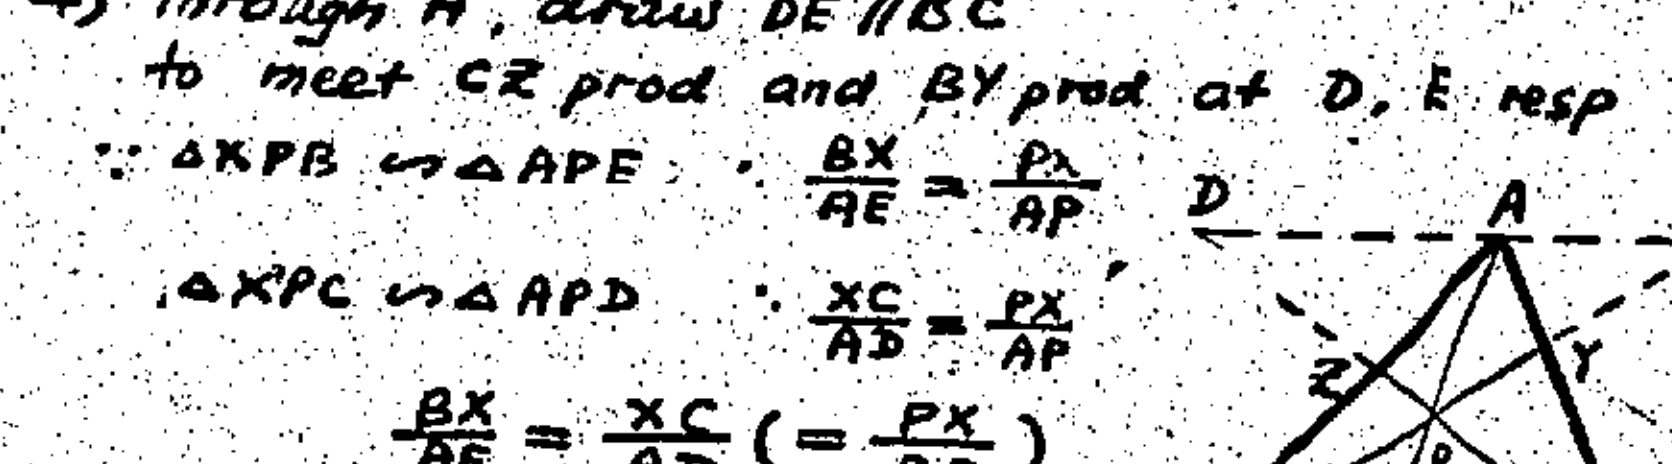 4) Through A, draw DE // BC
to meet CZ prod and BY prod at D, E resp
∵ △XPB ∽ △APE ∴ BX/AE = PX/AP
D A
△XPC ∽ △APD ∴ XC/AD = PX/AP
Z Y
BX/AE = XC/AD (= PX/AP)
P